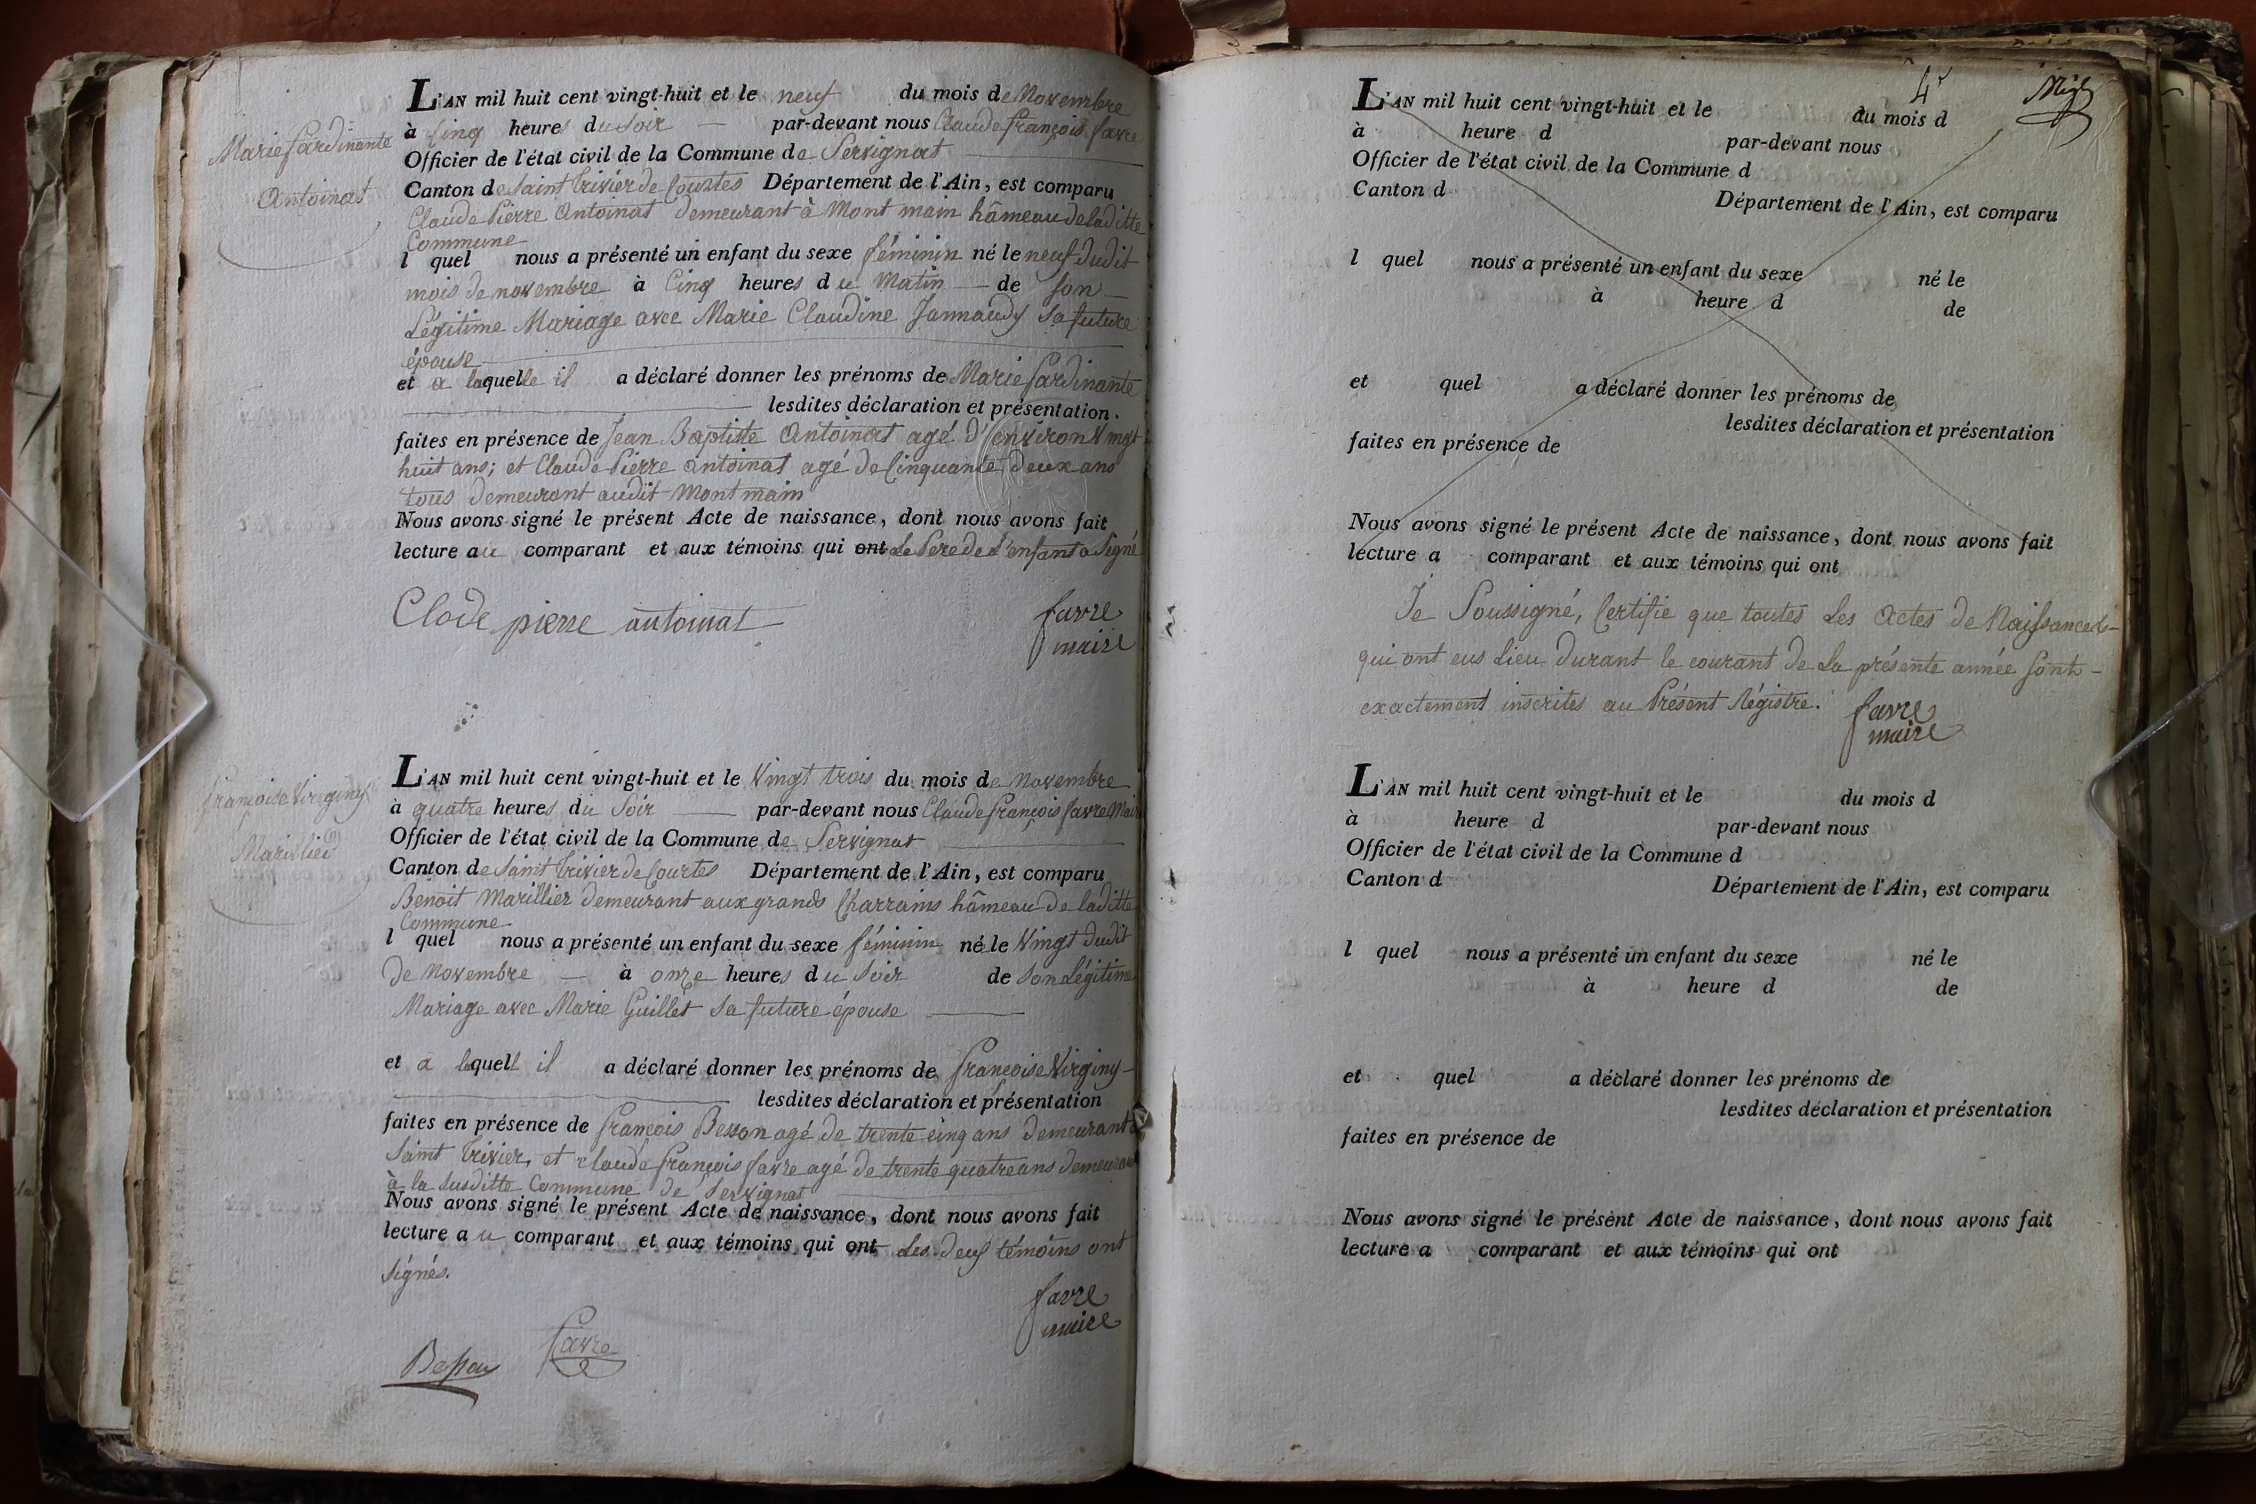 Marie fardinante
Antoinat
L'AN mil huit cent vingt-huit et le neuf du mois de Novembre
à Cinq heures du Soir — par-devant nous Claude françois favre
Officier de l'état civil de la Commune de Servignat
Canton de Saint Trivier de Courtes Département de l'Ain, est comparu
Claude Pierre Antoinat demeurant à Mont main hâmeau de laditte
Commune
l quel nous a présenté un enfant du sexe féminin né le neuf dudit
mois de novembre à Cinq heures du Matin — de Son
Légitime Mariage avec Marie Claudine Jannaudy Sa future
épouse
et a laquelle il a déclaré donner les prénoms de Marie fardinante
lesdites déclaration et présentation.
faites en présence de Jean Baptiste Antoinat agé d'environ Vingt
huit ans; et Claude Pierre Antoinat agé de Cinquante deux ans
tous demeurant audit Mont main
Nous avons signé le présent Acte de naissance, dont nous avons fait
lecture au comparant et aux témoins qui ont Le Pere de L'enfant a Signé
Clode pierre antoinat
favre
maire
francoise Virginy
Marillier
L'AN mil huit cent vingt-huit et le Vingt trois du mois de Novembre
à quatre heures du Soir — par-devant nous Claude françois favre Maire
Officier de l'état civil de la Commune de Servignat
Canton de Saint Trivier de Courtes Département de l'Ain, est comparu
Benoit Marillier demeurant aux grands Charrains hâmeau de laditte
Commune
l quel nous a présenté un enfant du sexe féminin né le Vingt dudit
de Novembre — à onze heures du Soir de Son Légitime
Mariage avec Marie Guillet Sa future épouse
et a laquell il a déclaré donner les prénoms de francoise Virginy
lesdites déclaration et présentation
faites en présence de francois Besson agé de trente cinq ans demeurant à
Saint Trivier, et claude françois favre agé de trente quatre ans demeurant
à la Susditte Commune de Servignat
Nous avons signé le présent Acte de naissance, dont nous avons fait
lecture au comparant et aux témoins qui ont Les deux témoins ont
Signés.
favre
maire
Favre
Besson
4
L'AN mil huit cent vingt-huit et le du mois d
à heure d par-devant nous
Officier de l'état civil de la Commune d
Canton d Département de l'Ain, est comparu
l quel nous a présenté un enfant du sexe né le
à heure d de
et quel a déclaré donner les prénoms de
lesdites déclaration et présentation
faites en présence de
Nous avons signé le présent Acte de naissance, dont nous avons fait
lecture a comparant et aux témoins qui ont
Je Soussigné, Certifie que toutes Les Actes de Naissances
qui ont eus Lieu Durant le courant de La présente année Sont
exactement inscrites au Présent Régistre.
favre
maire
L'AN mil huit cent vingt-huit et le du mois d
à heure d par-devant nous
Officier de l'état civil de la Commune d
Canton d Département de l'Ain, est comparu
l quel nous a présenté un enfant du sexe né le
à heure d de
et quel a déclaré donner les prénoms de
lesdites déclaration et présentation
faites en présence de
Nous avons signé le présent Acte de naissance, dont nous avons fait
lecture a comparant et aux témoins qui ont